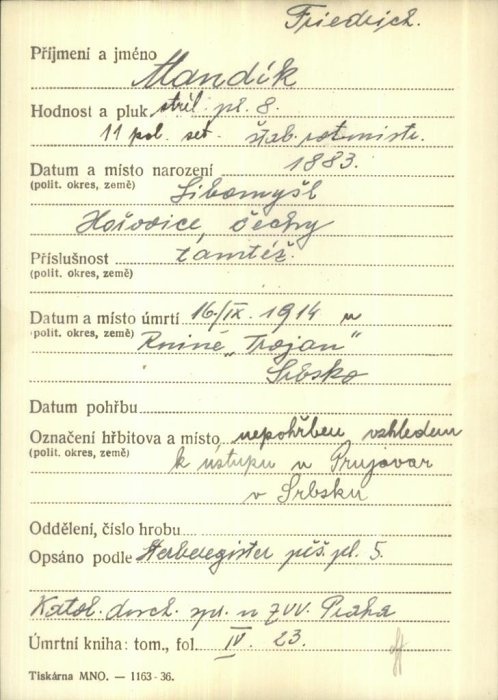 Friedrich.
Příjmení a jméno Mandík
Hodnost a pluk střel. pl. 8.
11 pol. set. štáb. rotmistr.
Datum a místo narození 1883.
(polit. okres, země) Libomyšl
Hořovice, Čechy
Příslušnost tamtéž.
(polit. okres, země)
Datum a místo úmrtí 16/IX. 1914 u
(polit. okres, země) Knině „Trojan"
Srbsko
Datum pohřbu
Označení hřbitova a místo nepohřben vzhledem
(polit. okres, země) k ústupu u Prnjavar
v Srbsku
Oddělení, číslo hrobu
Opsáno podle Sterberegister pěš. pl. 5.
Katol. duch. spr. u ZVV. Praha
Úmrtní kniha: tom., fol. IV. 23.
Tiskárna MNO. — 1163-36.